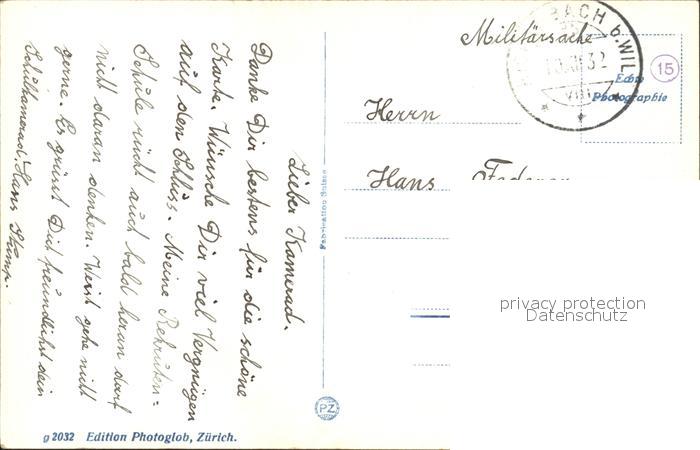 Lieber Kamerad.
Danke Dir bestens für die schöne
Karte. Wünsche Dir viel Vergnügen
auf den Schluss. Meine Rekruten=
Schule rückt auch bald heran darf
nicht daran denken. Weist gehe nicht
gerne. Es grüsst Dich freundlichst dein
Schulkamerad: Hans
Militärsache
BACH b. WIL
32
VIII
Echte
Photographie
15
Herrn
Hans
PZ
g 2032 Edition Photoglob, Zürich.
privacy protection
Datenschutz